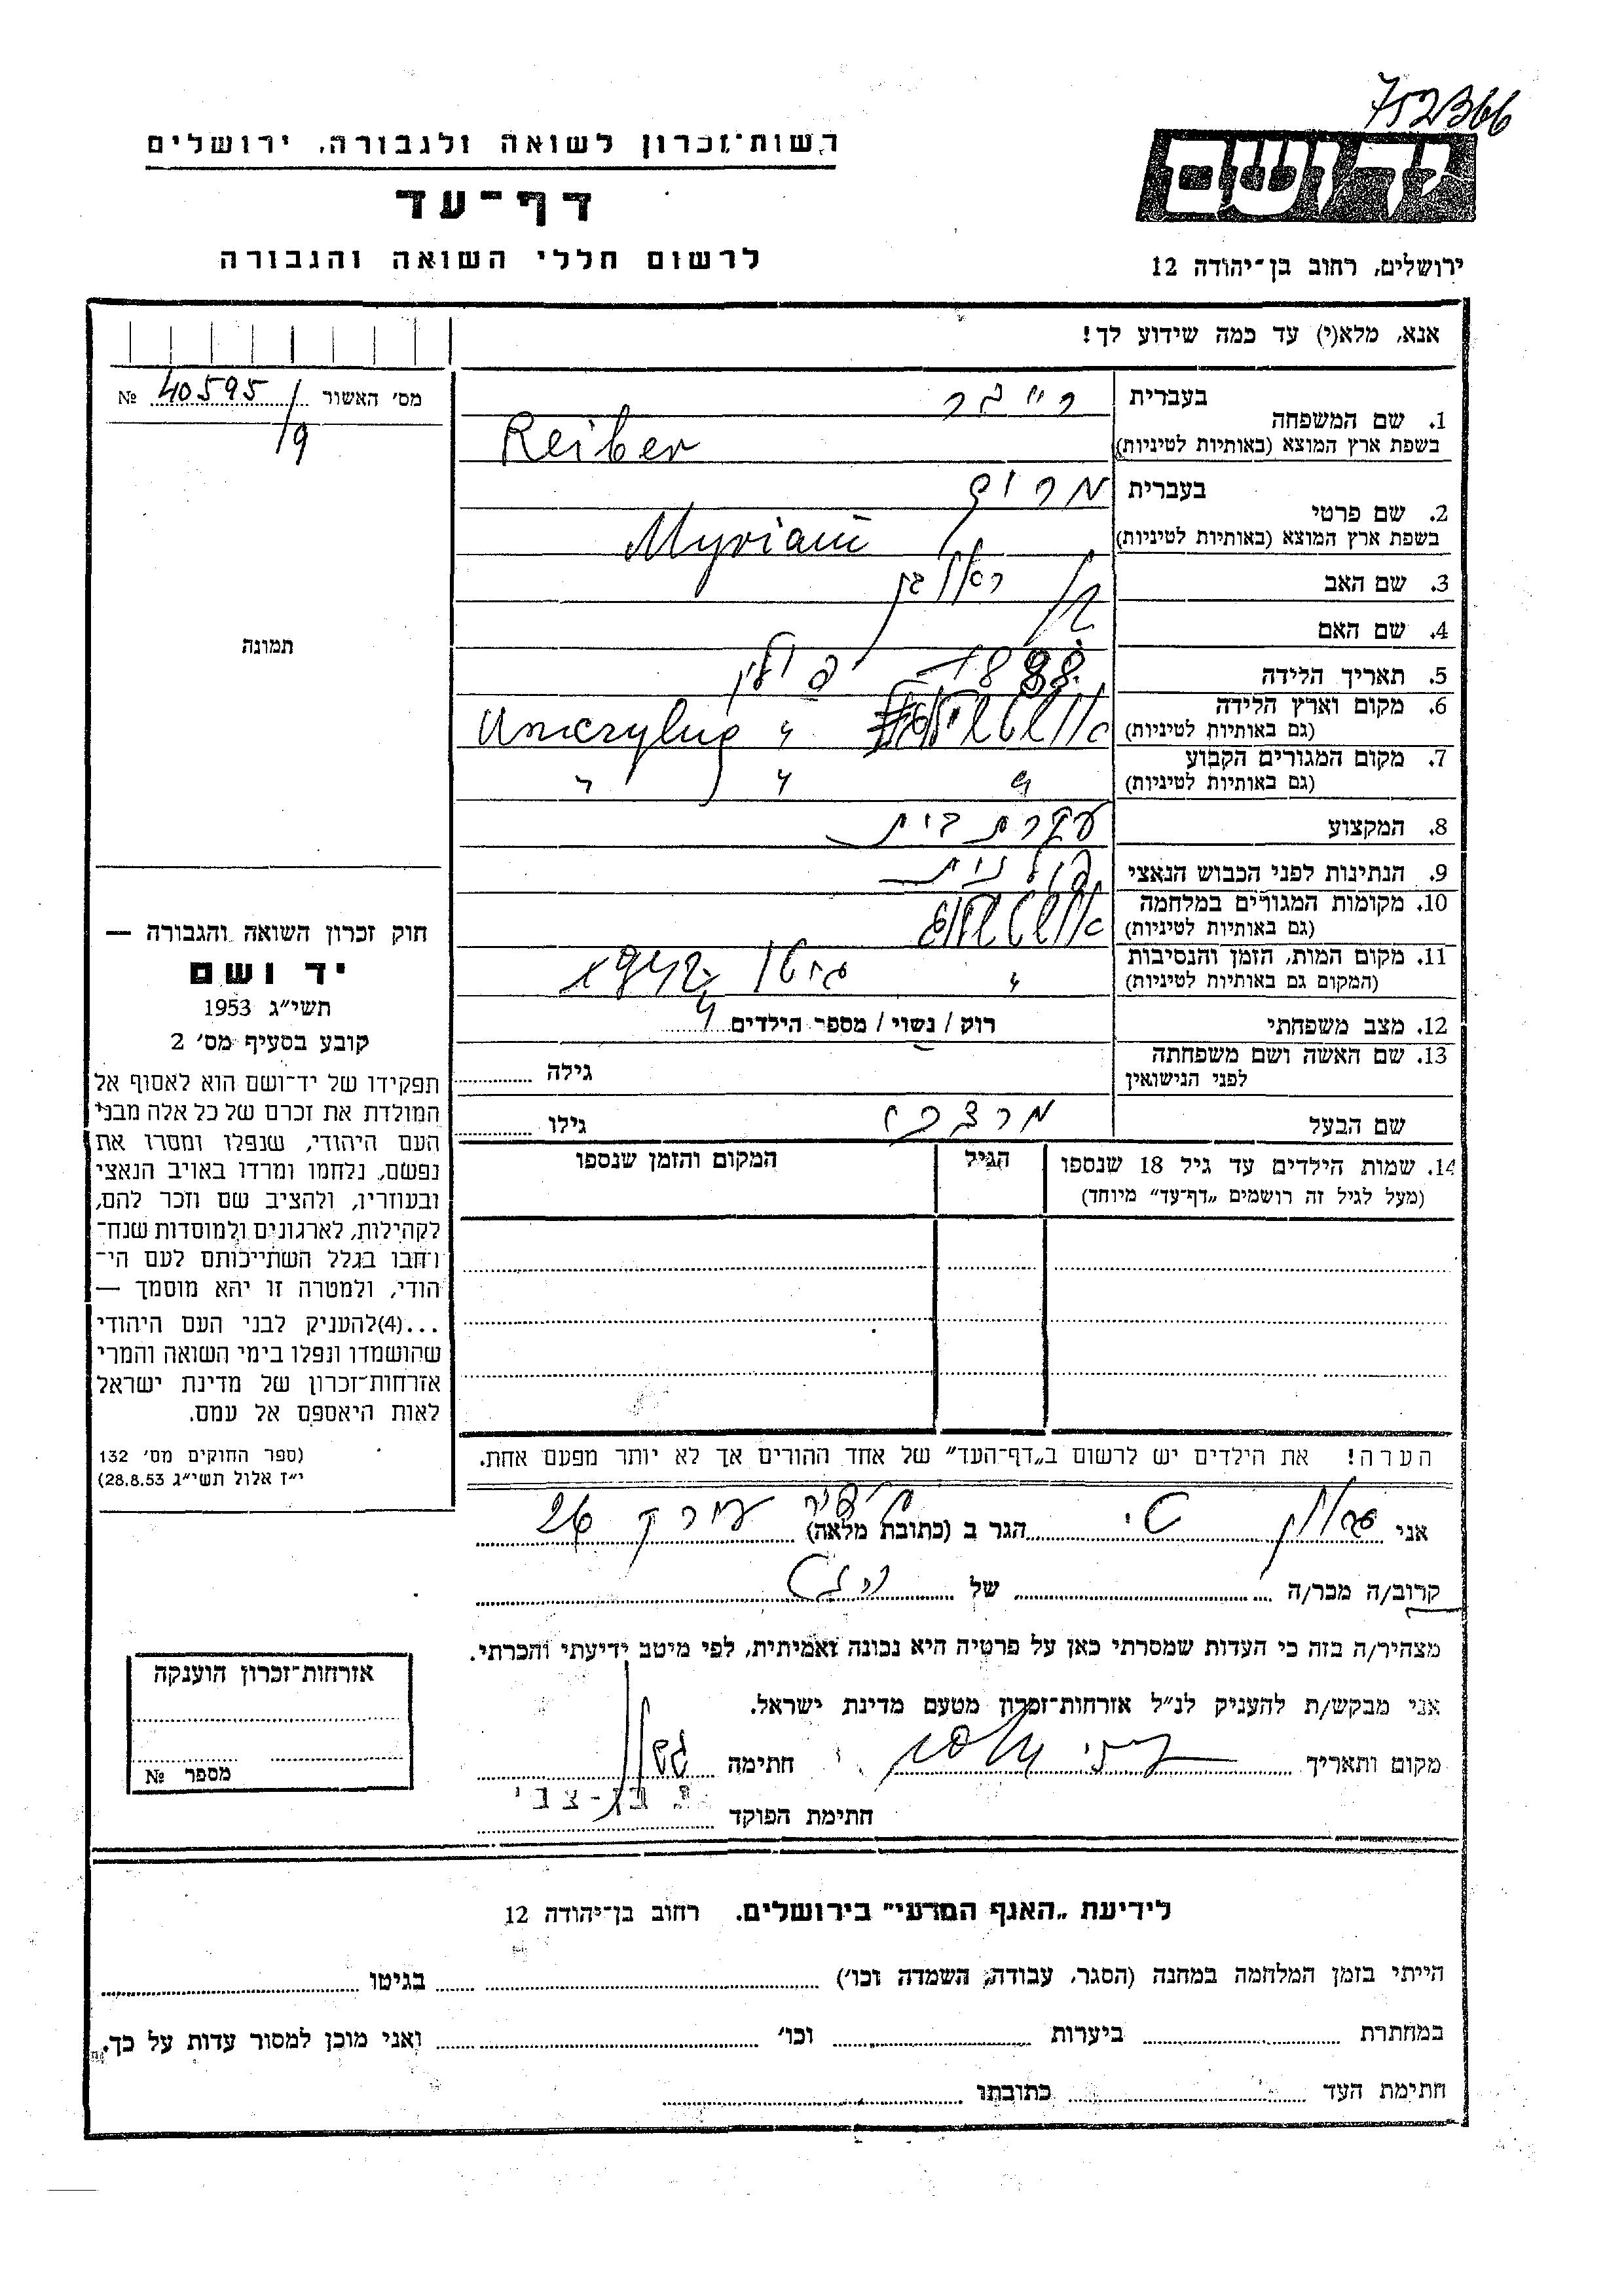 752366
רשות־זכרון לשואה ולגבורה, ירושלים
יד ושם
דף־עד
לרשום חללי השואה והגבורה
ירושלים, רחוב בן־יהודה 12
אנא, מלא(י) עד כמה שידוע לך!
מס׳ האשור 40595 №
/9
1. שם המשפחה
בעברית רייבר
בשפת ארץ המוצא (באותיות לטיניות) Reiber
2. שם פרטי
בעברית מרים
בשפת ארץ המוצא (באותיות לטיניות) Myriam
3. שם האב ראובן
4. שם האם
5. תאריך הלידה 1888
6. מקום וארץ הלידה פולין
(גם באותיות לטיניות)
7. מקום המגורים הקבוע
(גם באותיות לטיניות) " " "
8. המקצוע עקרת בית
9. הנתינות לפני הכבוש הנאצי פולנית
10. מקומות המגורים במלחמה
(גם באותיות לטיניות)
11. מקום המות, הזמן והנסיבות
(המקום גם באותיות לטיניות) " גיטו 1942
12. מצב משפחתי רוק / נשוי / מספר הילדים 4
13. שם האשה ושם משפחתה
לפני הנישואין גילה
שם הבעל מרדכי גילו
14. שמות הילדים עד גיל 18 שנספו הגיל המקום והזמן שנספו
(מעל לגיל זה רושמים „דף־עד” מיוחד)
הערה! את הילדים יש לרשום ב„דף־העד” של אחד ההורים אך לא יותר מפעם אחת.
תמונה
חוק זכרון השואה והגבורה —
יד ושם
תשי״ג 1953
קובע בסעיף מס׳ 2
תפקידו של יד־ושם הוא לאסוף אל
המולדת את זכרם של כל אלה מבני
העם היהודי, שנפלו ומסרו את
נפשם, נלחמו ומרדו באויב הנאצי
ובעוזריו, ולהציב שם וזכר להם,
לקהילות, לארגונים ולמוסדות שנח־
רחבו בגלל השתייכותם לעם הי־
הודי, ולמטרה זו יהא מוסמך —
...(4)להעניק לבני העם היהודי
שהושמדו ונפלו בימי השואה והמרי
אזרחות־זכרון של מדינת ישראל
לאות היאספם אל עמם.
(ספר החוקים מס׳ 132
י״ז אלול תשי״ג 28.8.53)
אני הגר ב (כתובת מלאה) 26
קרוב/ה מכר/ה של
מצהיר/ה בזה כי העדות שמסרתי כאן על פרטיה היא נכונה ואמיתית, לפי מיטב ידיעתי והכרתי.
אני מבקש/ת להעניק לנ״ל אזרחות־זכרון מטעם מדינת ישראל.
מקום ותאריך חתימה
חתימת הפוקד בן-צבי
אזרחות־זכרון הוענקה
מספר №
לידיעת „האגף המדעי” בירושלים. רחוב בן־יהודה 12
הייתי בזמן המלחמה במחנה (הסגר, עבודה, השמדה וכו׳) בגיטו
במחתרת ביערות וכו׳ ואני מוכן למסור עדות על כך.
חתימת העד כתובתו